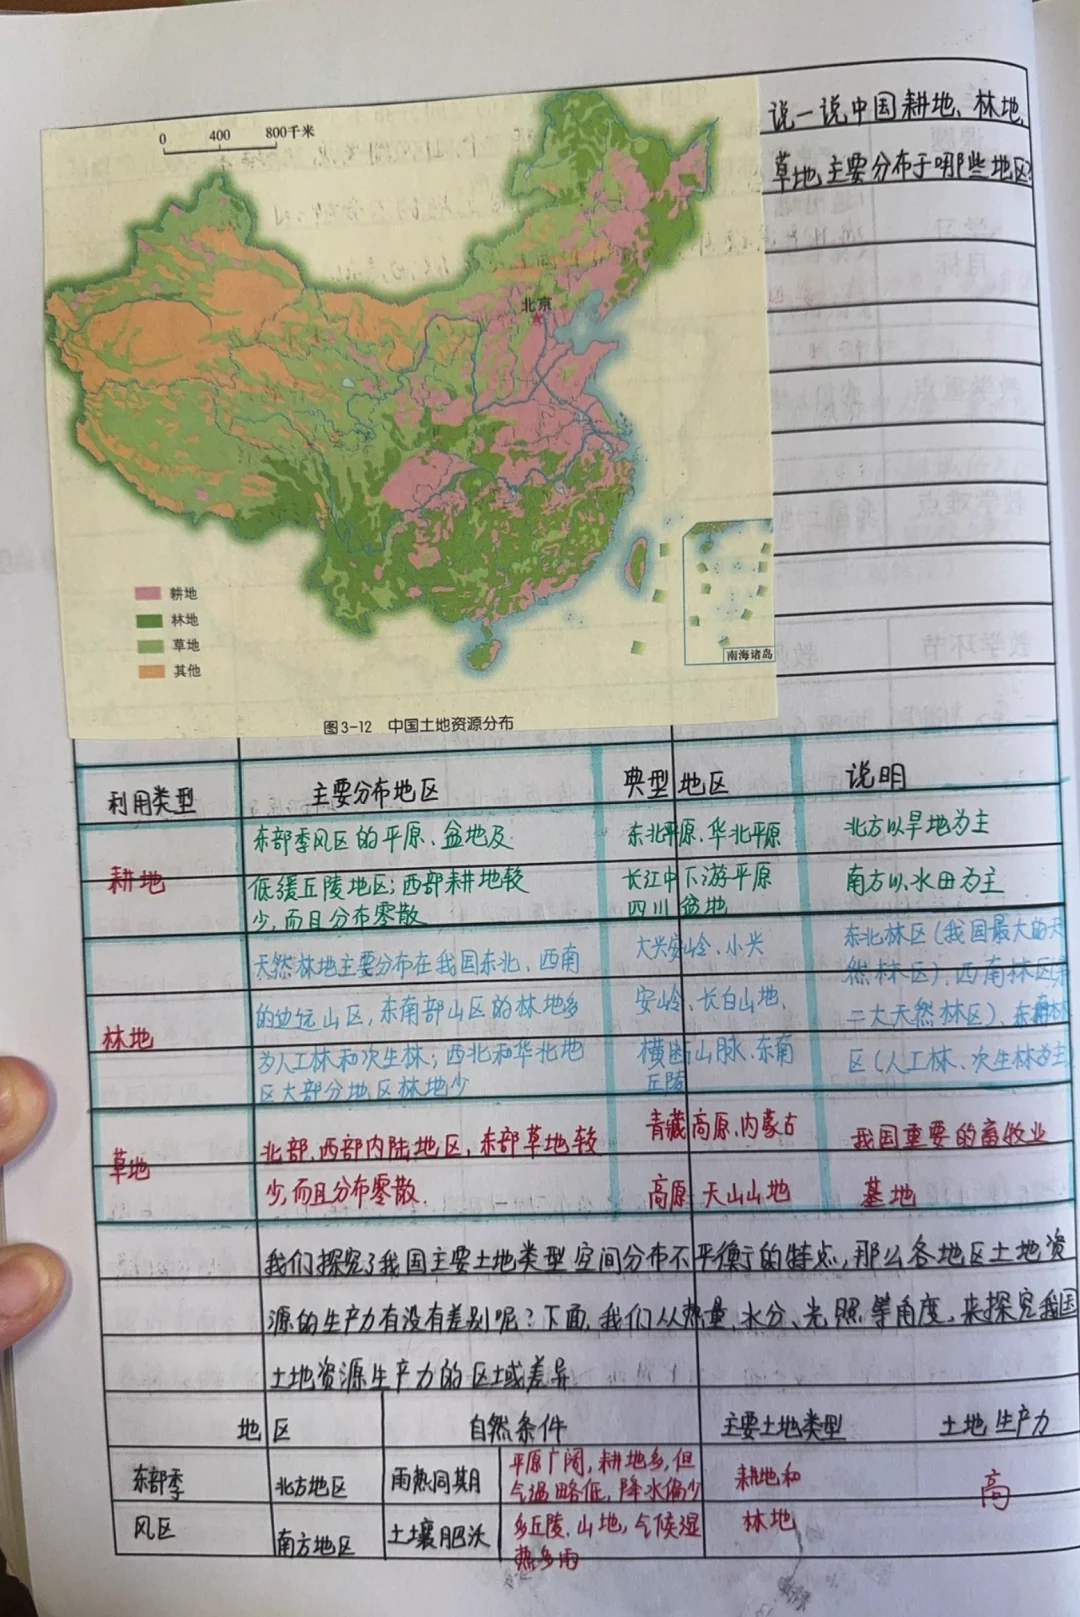 0 400 800千米
说一说中国耕地、林地、
草地主要分布于哪些地区?
北京
耕地
林地
草地
其他
南海诸岛
图3-12 中国土地资源分布
利用类型 主要分布地区 典型地区 说明
耕地
东部季风区的平原、盆地及
低缓丘陵地区;西部耕地较
少,而且分布零散
东北平原、华北平原
长江中下游平原
四川盆地
北方以旱地为主
南方以水田为主
林地
天然林地主要分布在我国东北、西南
的边远山区,东南部山区的林地多
为人工林和次生林;西北和华北地
区大部分地区林地少
大兴安岭、小兴
安岭、长白山地、
横断山脉、东南
丘陵
东北林区(我国最大的天
然林区)、西南林区(第
二大天然林区)、东南林
区(人工林、次生林为主)
草地
北部、西部内陆地区,东部草地较
少,而且分布零散.
青藏高原、内蒙古
高原、天山山地
我国重要的畜牧业
基地
我们探究了我国主要土地类型空间分布不平衡的特点,那么各地区土地资
源的生产力有没有差别呢?下面,我们从热量、水分、光照等角度,来探究我国
土地资源生产力的区域差异
地区 自然条件 主要土地类型 土地生产力
东部季
风区
北方地区
南方地区
雨热同期
土壤肥沃
平原广阔,耕地多,但
气温略低,降水偏少
多丘陵、山地,气候湿
热多雨
耕地和
林地
高